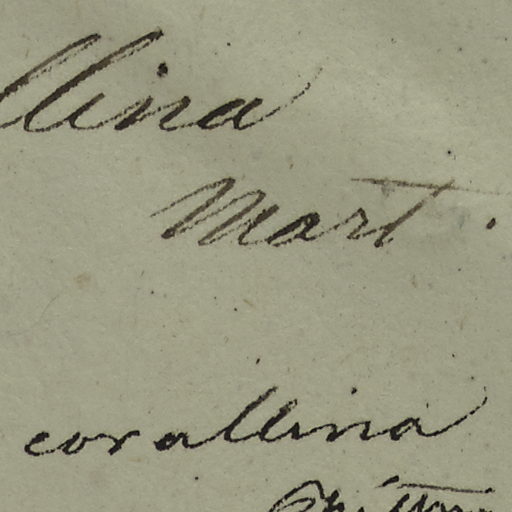 llina
Mart.
corallina